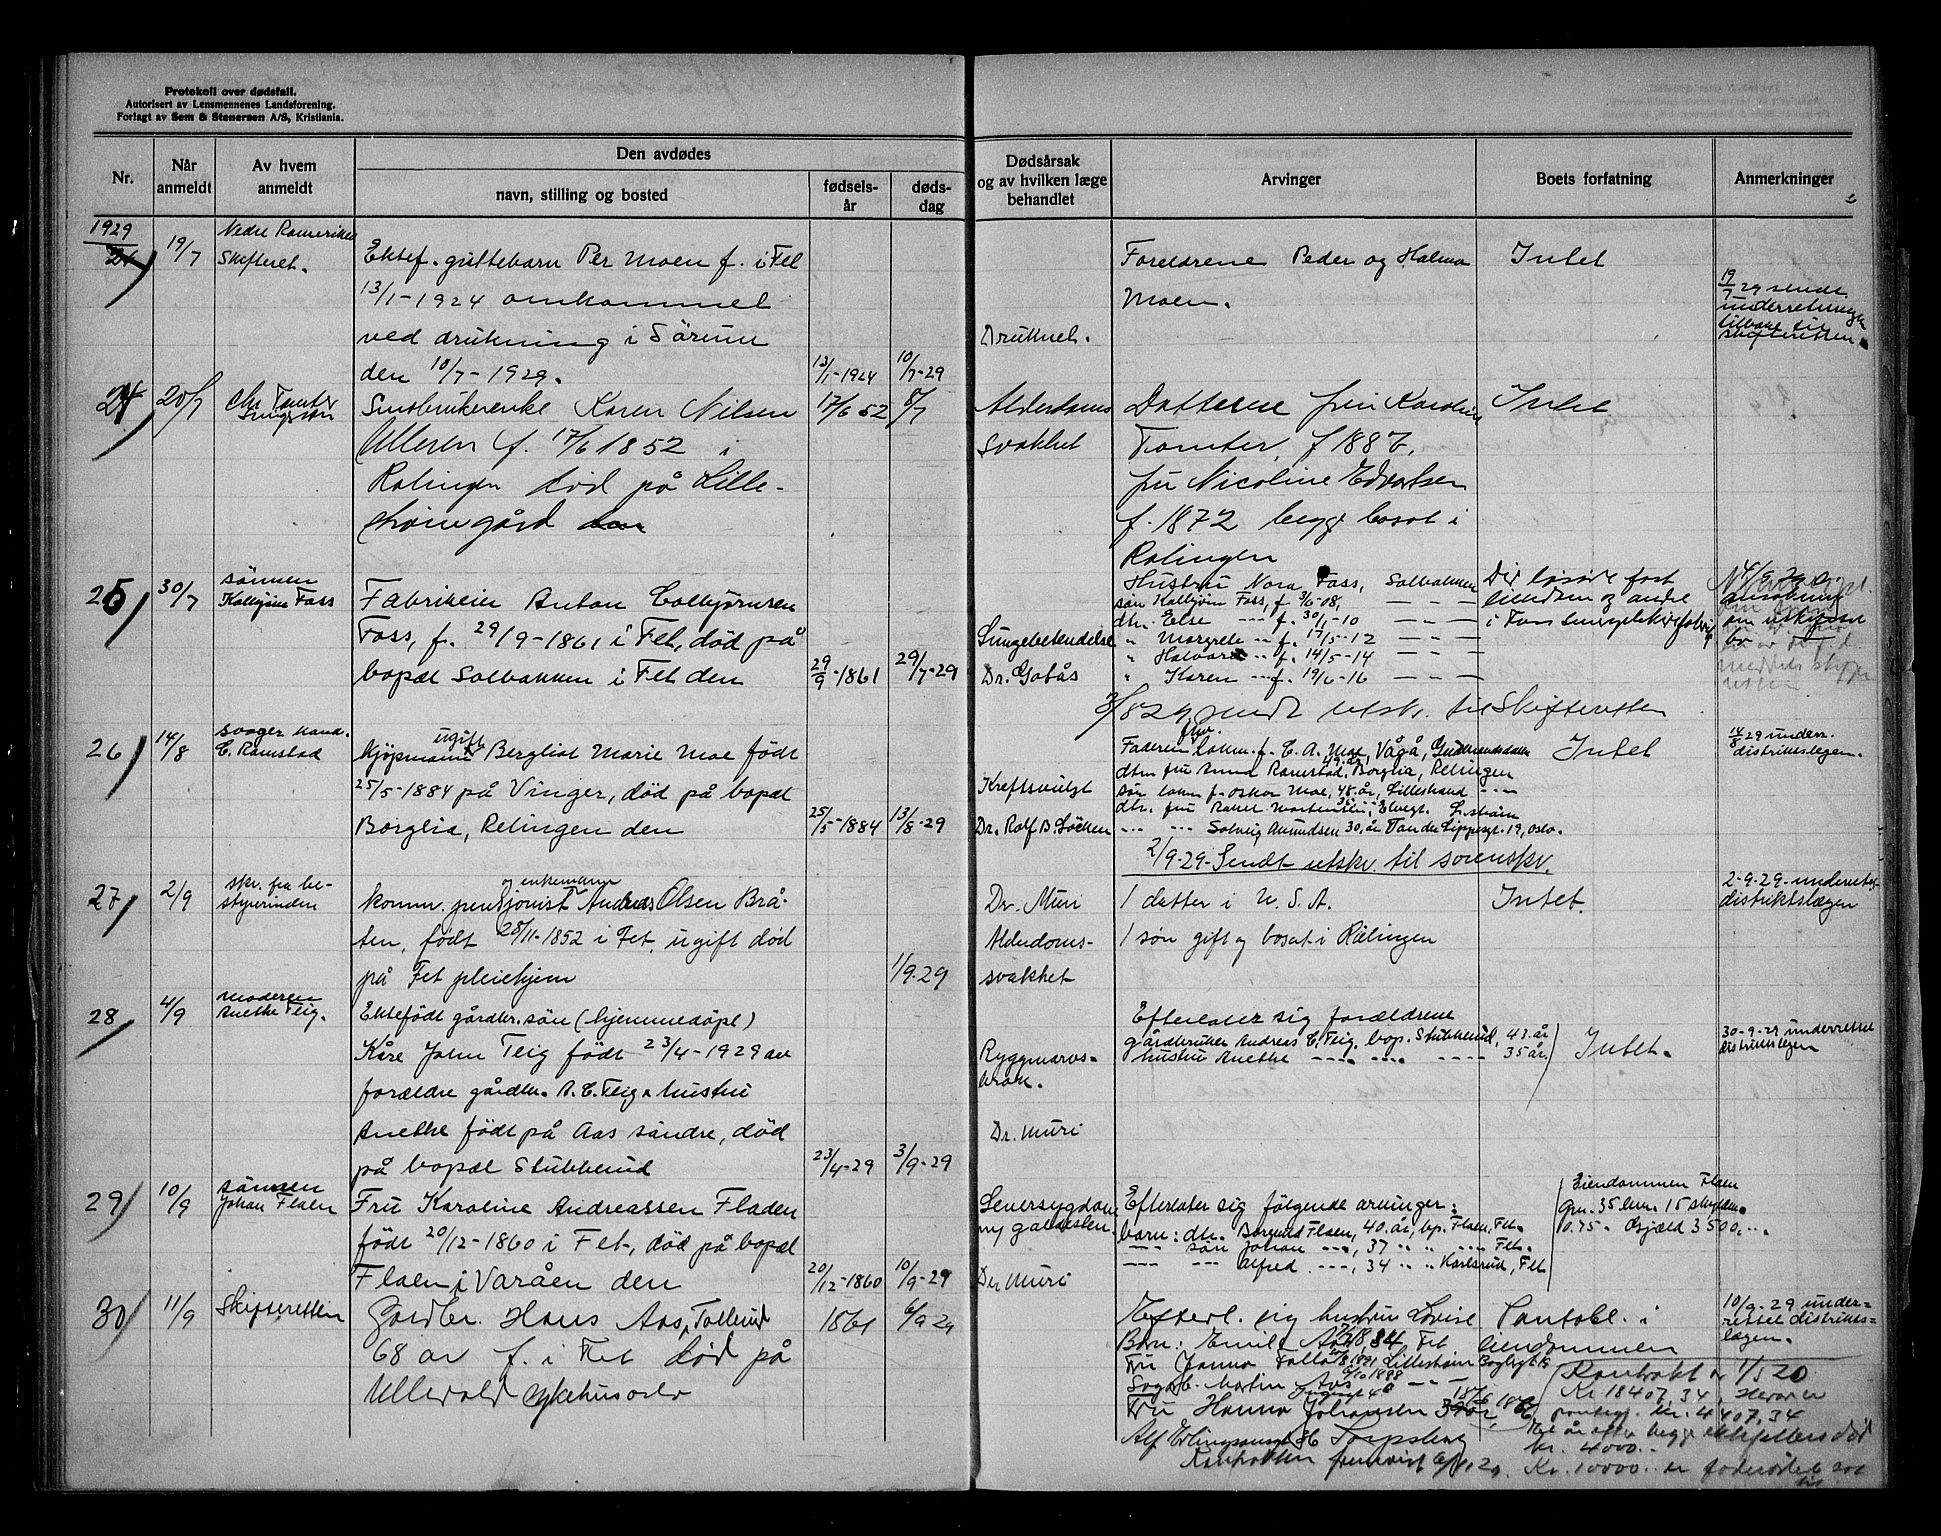 Protokoll over dødsfall.
Autorisert av Lensmennenes Landsforening.
Forlagt av Sem & Stenersen A/S, Kristiania.
Nr.
Når anmeldt
Av hvem anmeldt
Den avdødes
navn, stilling og bosted
fødsels-år
døds-dag
Dødsårsak og av hvilken læge behandlet
Arvinger
Boets forfatning
Anmerkninger
1929
19/7
Nedre Romerike
Skifteret.
Ektef. guttebarn Per Moen f. i Fet
13/1-1924 omkommet
ved drukning i Sörum
den 10/7-1929.
13/1-1924
10/7-29
Druknet.
Foreldrene Peder og Halma
Moen.
Intet
19/7 29 sendt
underretningen
tilbake til
skifteretten.
24
20/7
Chr Tomter
Småbrukerenke Karen Nilsen
Ulleren f. 17/6 1852 i
Rælingen död på Lille-
strömgård
17/6 52
Alderdoms
svakhet
Døttrene fru Karoline
Tomter, f 1887,
fru Nicoline Edvartsen
f. 1872 begge bosat i
Rælingen
Intet
25
30/7
sönnen
Kolbjörn Foss
Fabrikeier Anton Colbjørnsen
Foss, f. 29/9-1861 i Fet, død på
bopæl Solbakken i Fet den
29/9-1861
29/7-29
Lungebetendelse
Dr. Gobøs
Hustru Nora Foss, Solbakken
søn Kolbjörn Foss, f. 3/6-08, — — —
dtr. Else --- f. 30/1-10 — — —
" Margrete -- f. 17/5-12 — — —
" Halvard -- f. 14/5-14 — — —
" Karen --- f. 19/6-16 — — —
Div løsøre fast
eiendom og andel
i
3/8 29 sendt utskr. til Skifteretten
26
14/8
svoger
C. Ramstad
ugift
Kjøpmann Bergliot Marie Moe født
25/5-1884 på Vinger, død på bopæl
Borglia, Rælingen den
25/5-1884
13/8-29
Kreftsvulst
Dr. Rolf B. Löchen
Faderen f. C. A. Moe, Vågå, Gudbrandsdalen
dtr. fru Ramstad, Borglia, Relingen
søn f. Oskar Moe, 48. år, Lillestrand
dtr. fru
--- --- Solveig Amundsen 30. år 19, Oslo.
2/9-29- Sendt utskr. til sorenskr.
Intet
14/8 29 underr.
distriktslegen.
27
2/9
skr. fra be-
styrerinden
og enkemann
komm. pensjonist Andreas Olsen Brå-
ten, født 28/11-1852 i Fet, ugift død
på Fet pleiehjem
1/9-29
Dr. Muri
Alderdoms-
svakhet
1 datter i U. S. A.
1 søn gift og bosat i Rælingen
Intet.
2-9-29-underrettet
distriktslægen
28
4/9
moderen
Anethe Teig.
Ektefödt gårdbr. sön (hjemmedöpt)
Kåre John Teig født 23/4-1929 av
forældre gårdbr. A. C. Teig & hustru
Anethe født på Aas söndre, död
på bopæl Stubberud
23/4-29
3/9-29
Ryggmarvs-
brok.
Dr. Muri
Efterlater sig forældrene
gårdbruker Andreas C. Teig, bop. Stubberud, 43. år
hustru Anethe ---- ---- ---- 35 år
Intet.
30-9-29 underrettet
distriktslegen
29
10/9
sönnen
Johan Flaen
Fru Karoline Andreassen Fladen
født 20/12-1860 i Fet, død på bopæl
Flaen i Varåen den
20/12-1860
10/9-29
Leversygdom
og galdesten.
Dr Muri
Efterlater sig følgende arvinger:
barn: dtr. Borghild Flaen, 40. år, bp. Flaen, Fet.
--- søn Johan ---, 37 " " --- Fet.
--- --- Alfred ---, 34 " " Karlsrud, Fet
Eiendommen Flaen
Gnr. 35 bnr. 15 skyldm.
0.75. Gjæld 3500,--.
30
11/9
Skifteretten
Gårdbr. Hans Aas, Tollerud
68 år f. i Fet død på
Ullevold sykehus Oslo
1861
6/9 29
Efterl. sig hustru Lovise
Barn: Emil Aas, Fet
Fru Lilleström
Martin Aas
Fru Hanna Johansen
Pantobl. i
eiendommen
10/9-29 under-
rettet distrikts-
lægen.
Kontrakt av 1/5 20
Kr 18407,34,
pantegj. kr. 4407,34
begge
kr. 4000.-
Kr. 10000.- er föderåd